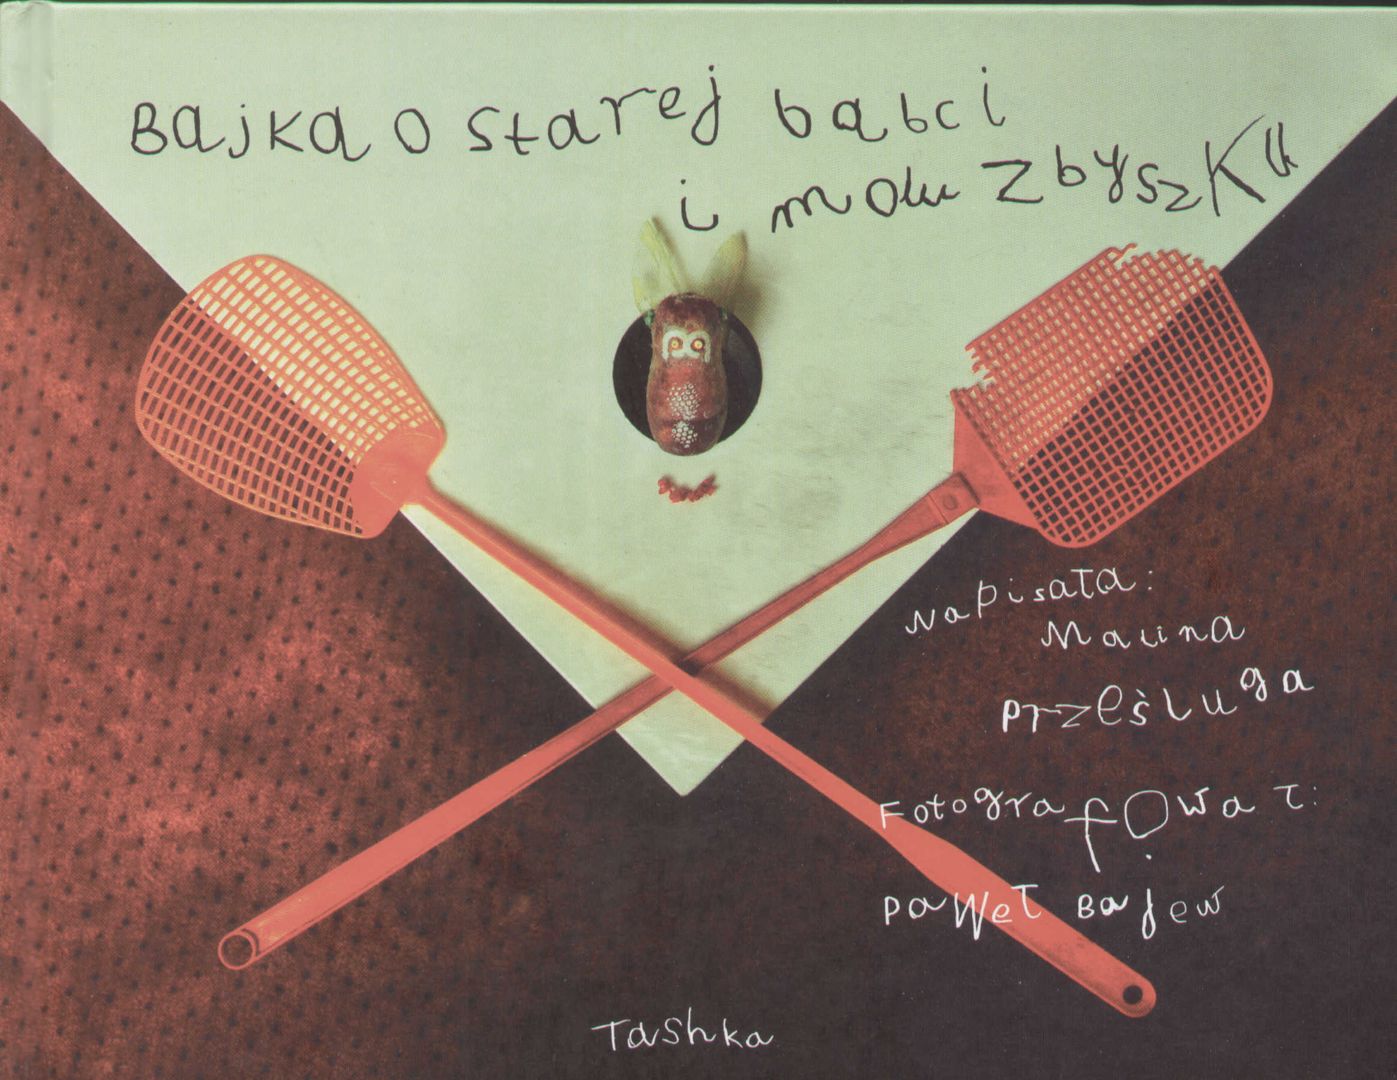 Bajka o starej babci
i molu Zbyszku
napisała:
Malina
Prześluga
Fotografował:
Paweł Bajew
Tashka